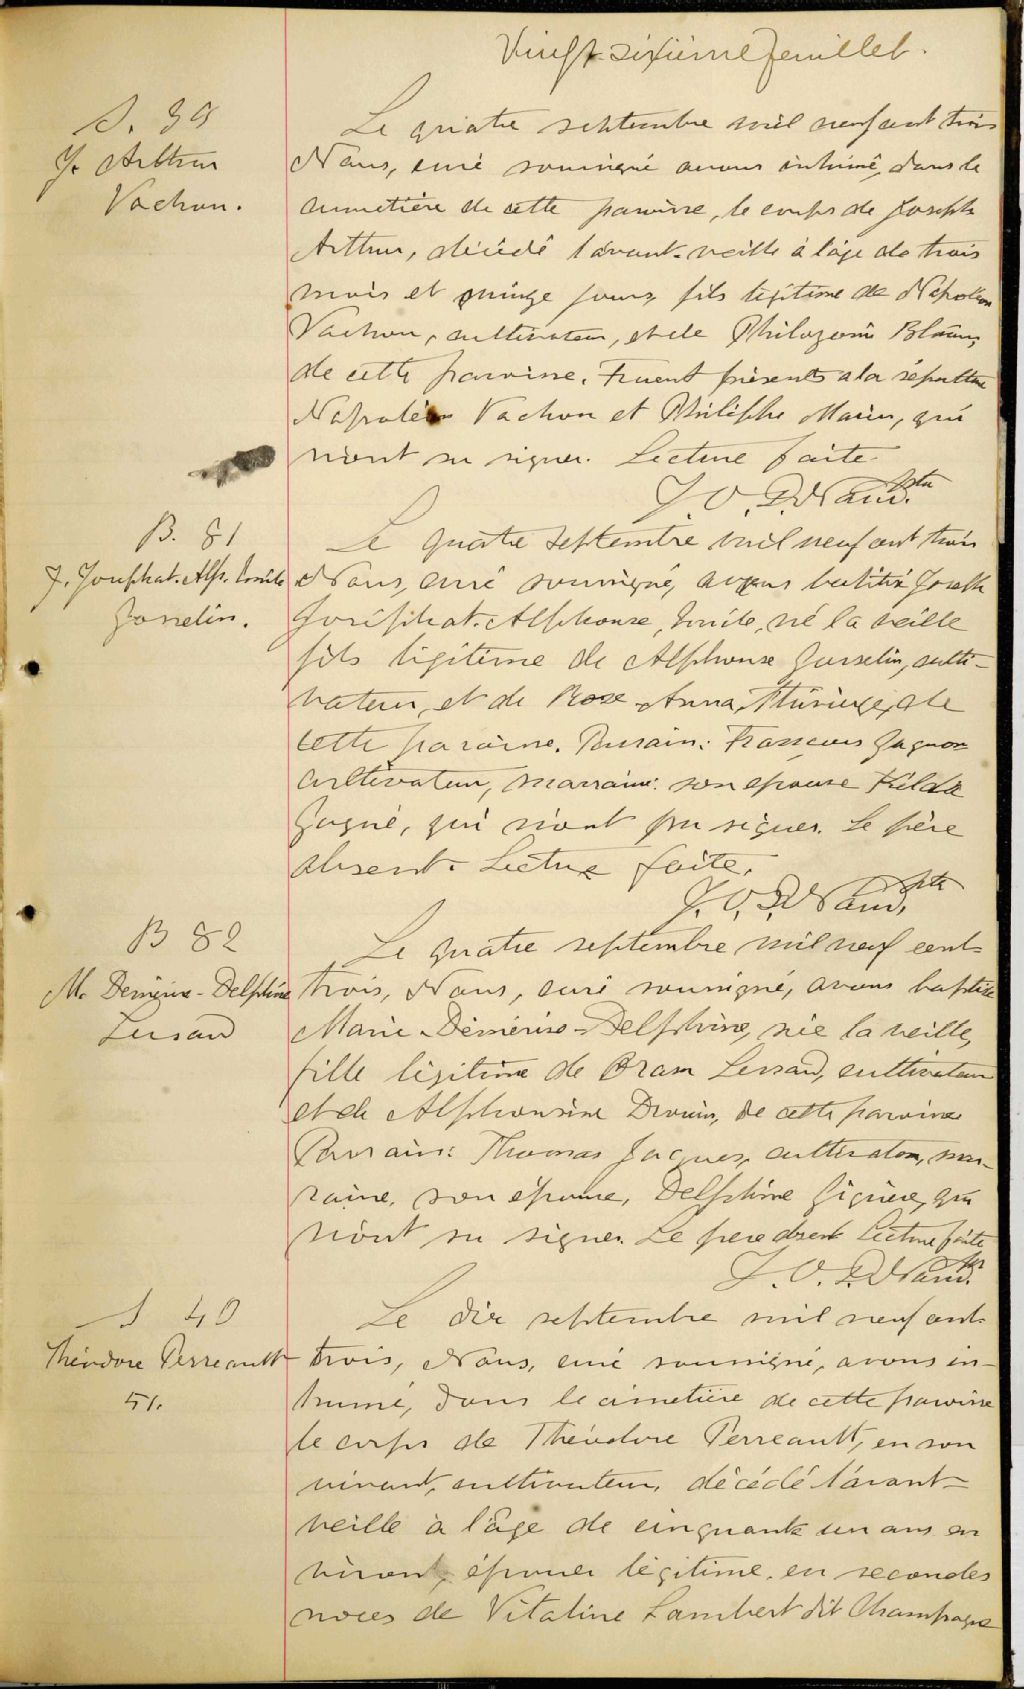 Vingt-sixième feuillet.
S. 39
J. Arthur
Vachon.
Le quatre septembre mil neuf cent trois
Nous, curé soussigné avons inhumé, dans le
cimetière de cette paroisse, le corps de Joseph
Arthur, décédé l'avant-veille à l'âge de trois
mois et quinze jours, fils légitime de Napoléon
Vachon, cultivateur, et de Philozomi
de cette paroisse. Furent présents à la sépulture
Napoléon Vachon et Philippe Marin, qui
n'ont su signer. Lecture faite.
J. O. D. Naud. ptre
B. 81
J. Josaphat. Alp. Émile
Gosselin.
Le quatre septembre mil neuf cent trois
Nous, curé soussigné, avons baptisé Joseph
Josaphat. Alphonse, Émile, né la veille
fils légitime de Alphonse Gosselin, culti-
vateur, et de Rose-Anna Thivierge, de
cette paroisse. Parrain: François Gagnon
cultivateur, marraine: son épouse
Gagné, qui n'ont pu signer. Le père
absent. Lecture faite.
J. O. D. Naud, ptre
B 82
M. Démérise-Delphine
Lessard
Le quatre septembre mil neuf cent
trois, Nous, curé soussigné, avons baptisé
Marie-Démérise-Delphine, née la veille,
fille légitime de Oram Lessard, cultivateur
et de Alphonsine Drouin, de cette paroisse
Parrain: Thomas Jacques, cultivateur, mar-
raine, son épouse, Delphine Giguère, qui
n'ont su signer. Le père absent Lecture faite
J. O. D. Naud. ptr
S 40
Théodore Perreault
51.
Le dix septembre mil neuf cent
trois, Nous, curé soussigné, avons in-
humé, dans le cimetière de cette paroisse
le corps de Théodore Perreault, en son
vivant, cultivateur, décédé l'avant-
veille à l'âge de cinquante un ans en
vivant, époux légitime, en secondes
noces de Vitaline Lambert dit Champagne